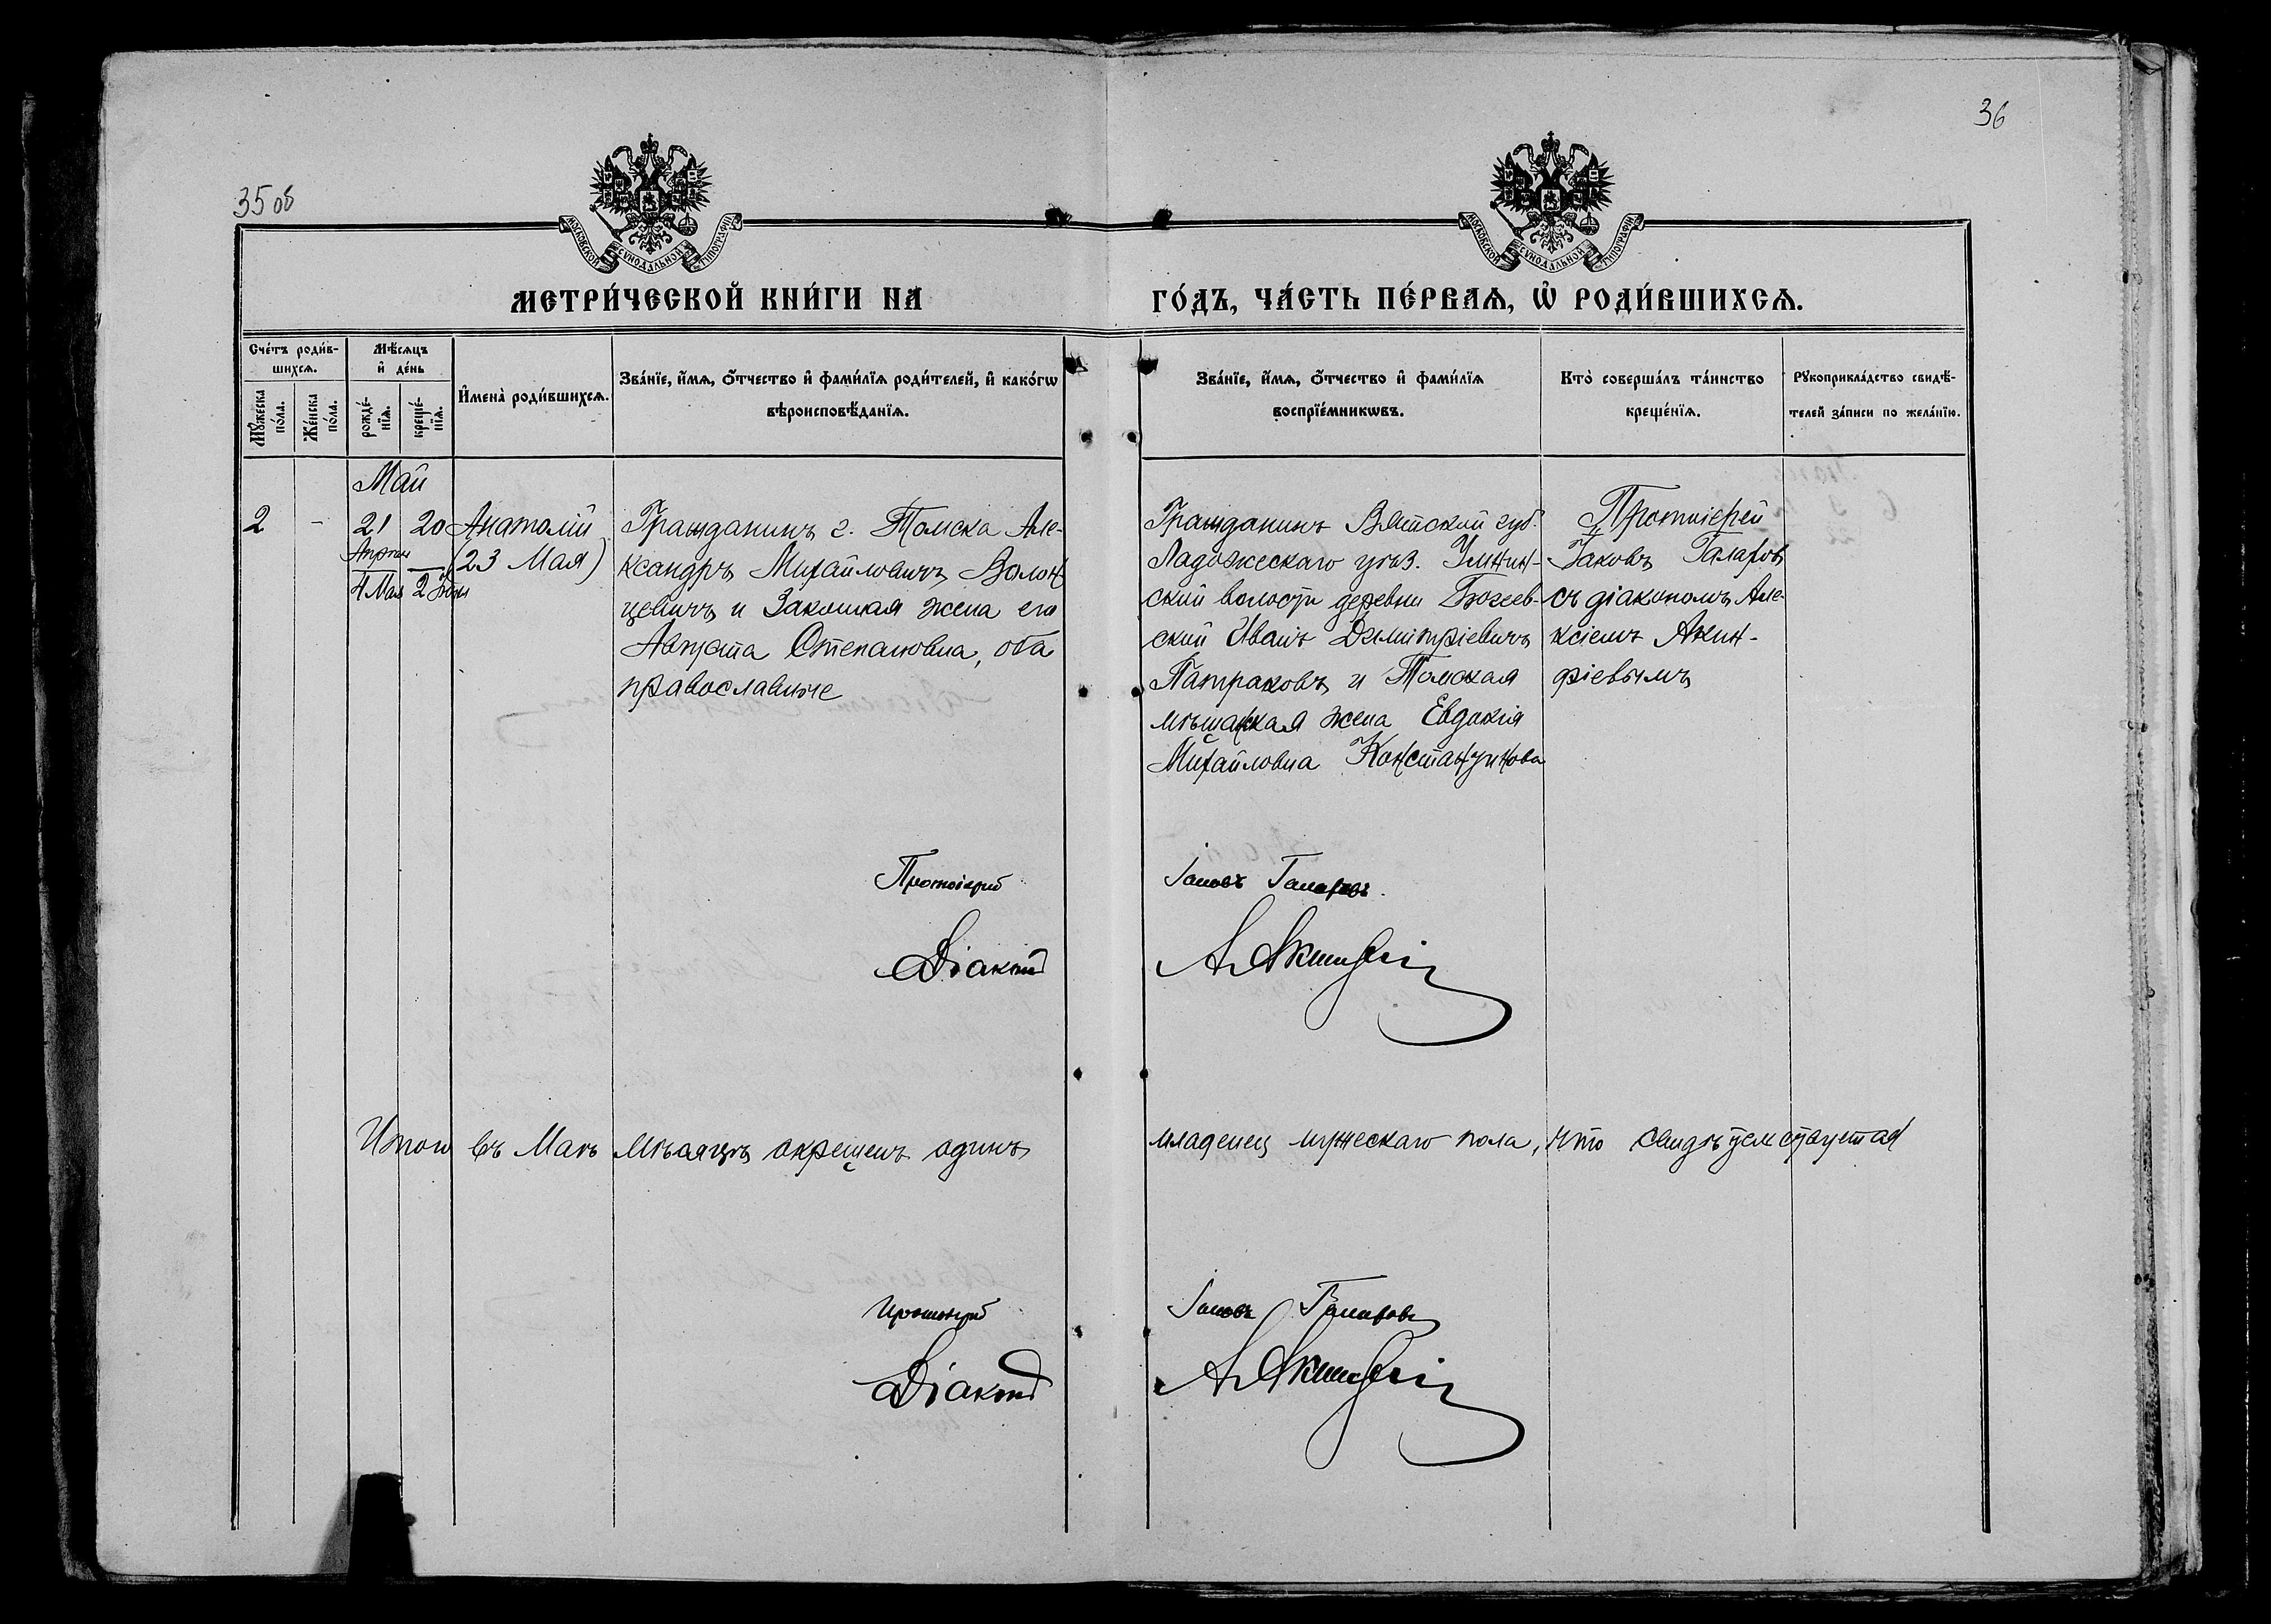 36
35 об
МОСКОВСКОЙ СѴНОДАЛЬНОЙ ТИПОГРАФІИ
МОСКОВСКОЙ СѴНОДАЛЬНОЙ ТИПОГРАФІИ
МЕТРИ́ЧЕСКОЙ КНИ́ГИ НА
ГО́ДЪ, ЧА́СТЬ ПЕ́РВАѦ, Ѡ҆ РОДИ́ВШИХСѦ.
Сче́тъ роди́в-
шихсѧ.
Мꙋжеска по́ла.
Же́нска по́ла.
Мѣ́сѧцъ
и҆ де́нь
рожде́-
нїѧ.
креще́-
нїѧ.
И҆мена̀ роди́вшихсѧ.
Зва́нїе, и҆́мѧ, ѻ҆́тчество и҆ фами́лїѧ роди́телей, и҆ како́гѡ
вѣроисповѣ́данїѧ.
Зва́нїе, и҆́мѧ, ѻ҆́тчество и҆ фами́лїѧ
воспрїе́мникѡвъ.
Кто̀ соверша́лъ та́инство
креще́нїѧ.
Рꙋкоприкла́дство свидѣ́-
телей за́писи по жела́нїю.
Май
2 - 21 20 Анатолій
Апрѣля (23 Мая)
4 Мая 2 Іюня
Гражданинъ г. Томска Але-
ксандръ Михайловичъ Волон
цевичъ и Законная жена его
Августа Степановна, оба
православные
Гражданинъ Вятской губ.
Ладожескаго уѣз.
ской волости деревни
ской Иванъ Димитріевичъ
Патраковъ и Томская
мѣщанская жена Евдокія
Михайловна Константинова
Протоіерей
Іаковъ Галаховъ
съ діакономъ Але-
ксіемъ Акин-
фіевымъ
Протоіерей Іаковъ Галаховъ.
Діаконъ А. Акинфіевъ
Итого въ Маѣ мѣсяцѣ окрещенъ одинъ младенец мужескаго пола, что свидѣтельствуется
Протоіерей Іаковъ Галаховъ
Діаконъ А. Акинфіевъ